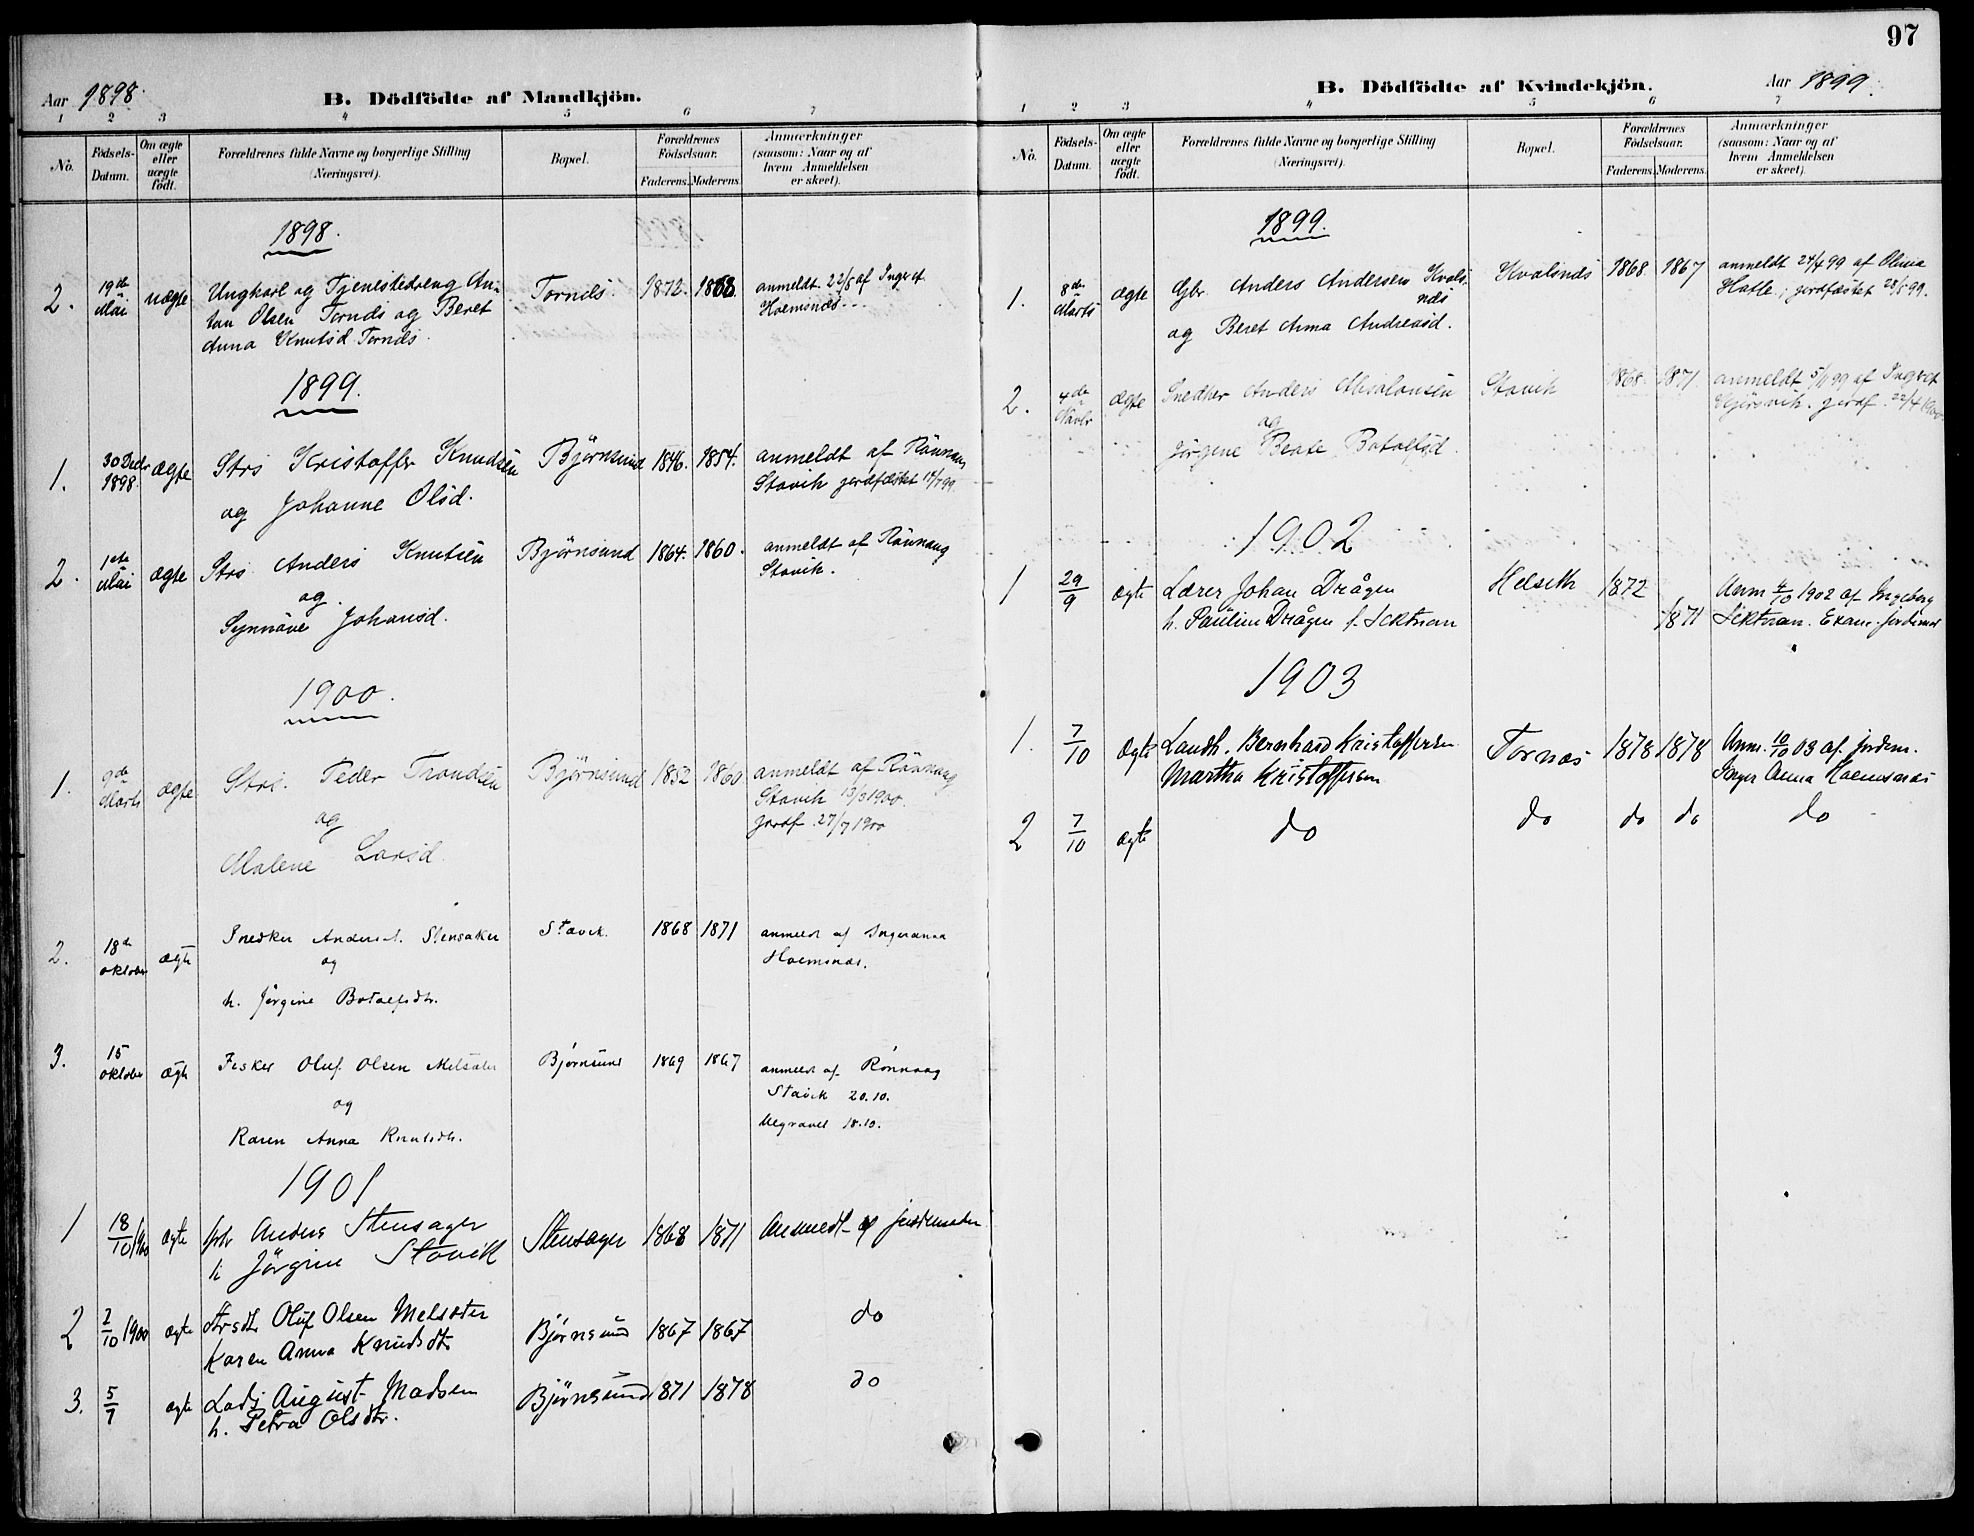 97
Aar 1898.
B. Dödfödte af Mandkjön.
1 2 3 4 5 6 7
No.
Födsels-Datum.
Om ægte eller uægte födt.
Forældrenes fulde Navne og borgerlige Stilling (Næringsvei).
Bopæl.
Forældrenes Födselsaar.
Faderens. Moderens.
Anmærkninger (saasom: Naar og af hvem Anmeldelsen er skeet).
1898.
2. 19de Mai uægte Ungkarl og Tjenestedreng An-
ton Olsen Tornæs og Beret
Anna Knutsd. Tornæs.
Tornæs. 1872. 1868. anmeldt 22/5 af Inger A.
Holmsnæs
1899.
1. 30 Decbr 1898. ægte Strs Kristoffer Knudsen
og Johanne Olsd.
Björnsund 1846. 1854. anmeldt af Rönnaug
Stavik jordfæstet
2. 1ste Mai ægte Strs Anders Knutsen
og
Synnöve Johansd.
Björnsund 1864. 1860. anmeldt af Rönnaug
Stavik.
1900.
1. 9de Marts ægte Strs. Peder Trondsen
og
Malene Larsd.
Björnsund 1852 1860 anmeldt af Rönnaug
Stavik 13/3 1900.
jordf. 27/7 1900
2. 18de oktober ægte Snedker Anders A. Stensaker
og
h. Jörgine Botolfsdtr.
Stavik. 1868 1871 anmeldt af Ingeranna
Holmsnæs.
3. 15 oktober ægte Fisker Oluf Olsen Melsæter
og
Karen Anna Knutsdtr.
Björnsund 1869 1867 anmeldt af Rönnaug
Stavik 20.10.
Begravet 18.10.
1901
1 18/10 1900 ægte Anders Stensager
h Jörgine Stavik
Stensager 1868 1871 Anmeldt af jordemoder
2 7/10 1900 ægte Oluf Olsen Melsæter
Karen Anna Knudsdtr
Björnsund 1867 1867 do
3. 5/7 ægte August Madsen
h. Petra Olsdtr.
Björnsund 1871 1878 do
B. Dödfödte af Kvindekjön.
Aar 1899.
1 2 3 4 5 6 7
No.
Födsels-Datum.
Om ægte eller uægte födt.
Forældrenes fulde Navne og borgerlige Stilling (Næringsvei).
Bopæl.
Forældrenes Födselsaar.
Faderens. Moderens.
Anmærkninger (saasom: Naar og af hvem Anmeldelsen er skeet).
1899.
1. 8de Marts ægte Gbr. Anders Andersen Kvals-
næs
og Beret Anna Andreasd.
Kvalsnæs 1868. 1867 anmeldt 24/4 99 af Olina
Hatle; jordfæstet 28/5 99.
2. 4de Novbr ægte Snedker Anders Absalonsen
og
Jörgine Beate Botolfsd.
Stavik 1868. 1871. anmeldt 5/11 99 af Inger A.
jordf. 22/4 1900
1902
1 29/9 ægte Lærer Johan Drågen
h. Pauline Drågen f. Sektnan
Helseth 1872 1871 Anm 4/10 1902 af Ingeborg
Sektnan. Exam. jordemor
1903
1. 7/10 ægte Landh. Bernhard Kristoffersen
Martha Kristoffersen
Tornæs 1878 1878 Anm. 10/10 03 af jordem.
Inger Anna Holmsnæs
2 7/10 ægte do do do do do